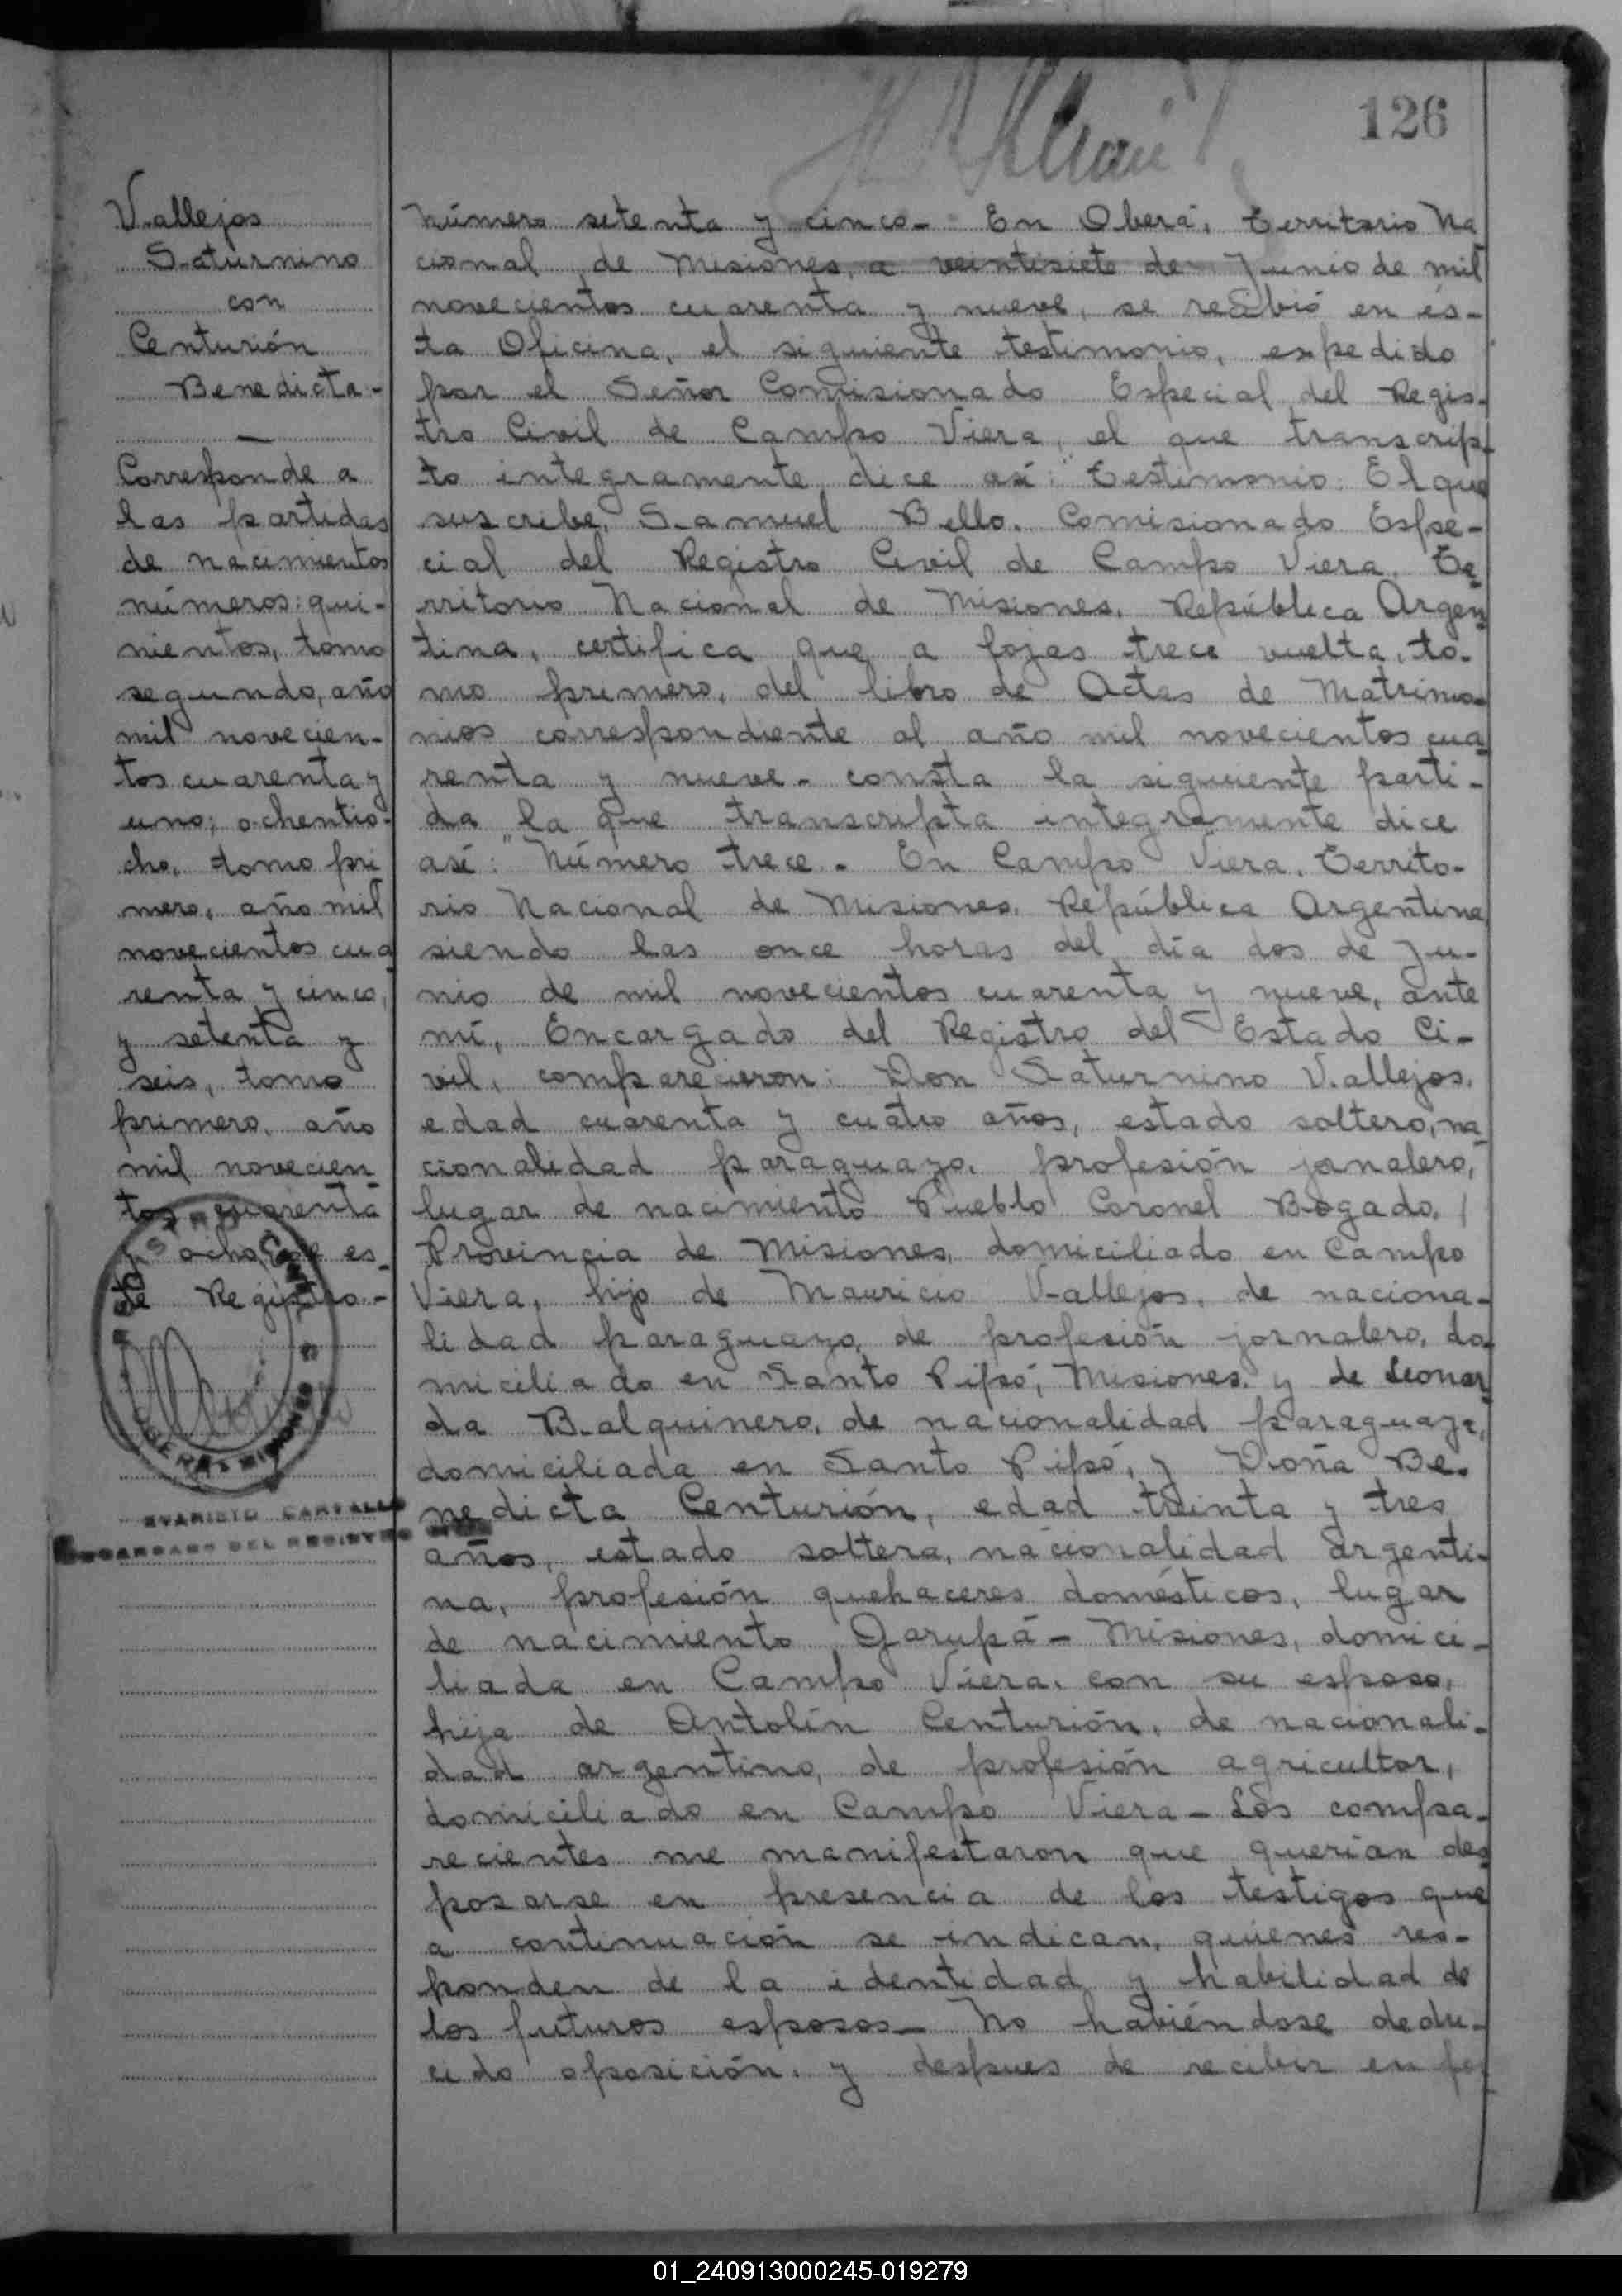 126
Vallejos
Saturnino
con
Centurión
Benedicta.-
—
Corresponde a
las partidas
de nacimientos
números: qui-
nientos, tomo
segundo, año
mil novecien-
tos cuarenta y
uno; ochentio-
cho, tomo pri
mero, año mil
novecientos cua
renta y cinco,
y setenta y
seis, tomo
primero, año
mil novecien
tos cuarenta
y ocho, de es-
te Registro.-
EVARISTO CARVALLO
ENCARGADO DEL REGISTRO CIVIL
Número setenta y cinco.- En Oberá, Territorio Na
cional de Misiones, a veintisiete de Junio de mil
novecientos cuarenta y nueve, se recibió en és-
ta Oficina, el siguiente testimonio, expedido
por el Señor Comisionado Especial del Regis-
tro Civil de Campo Viera, el que transcrip-
to integramente dice así: "Testimonio: El que
suscribe, Samuel Bello. Comisionado Espe-
cial del Registro Civil de Campo Viera, Te-
rritorio Nacional de Misiones, República Argen
tina, certifica que a fojas trece vuelta, to-
mo primero, del libro de Actas de Matrimo-
nios correspondiente al año mil novecientos cua
renta y nueve- consta la siguiente parti-
da la que transcripta integramente dice
así: "Número trece.- En Campo Viera, Territo-
rio Nacional de Misiones, República Argentina
siendo las once horas del día dos de Ju-
nio de mil novecientos cuarenta y nueve, ante
mí, Encargado del Registro del Estado Ci-
vil, comparecieron: Don Saturnino Vallejos,
edad cuarenta y cuatro años, estado soltero, na
cionalidad paraguayo, profesión jonalero,
lugar de nacimiento Pueblo Coronel Bogado,
Provincia de Misiones, domiciliado en Campo
Viera, hijo de Mauricio Vallejos, de naciona-
lidad paraguayo, de profesión jornalero, do-
miciliado en Santo Pipó, Misiones y de Leonar
da Balquinero, de nacionalidad paraguaya,
domiciliada en Santo Pipó, y Doña Be-
nedicta Centurión, edad treinta y tres
años, estado soltera, nacionalidad argenti-
na, profesión quehaceres domésticos, lugar
de nacimiento Garupá - Misiones, domici-
liada en Campo Viera, con su esposo,
hija de Antolín Centurión, de nacionali-
dad argentino, de profesión agricultor,
domiciliado en Campo Viera - Los compa-
recientes me manifestaron que querían des
posarse en presencia de los testigos que
a continuación se indican, quienes res-
ponden de la identidad y habilidad de
los futuros esposos- No habiéndose dedu-
cido oposición, y despues de recibir en
01_240913000245-019279